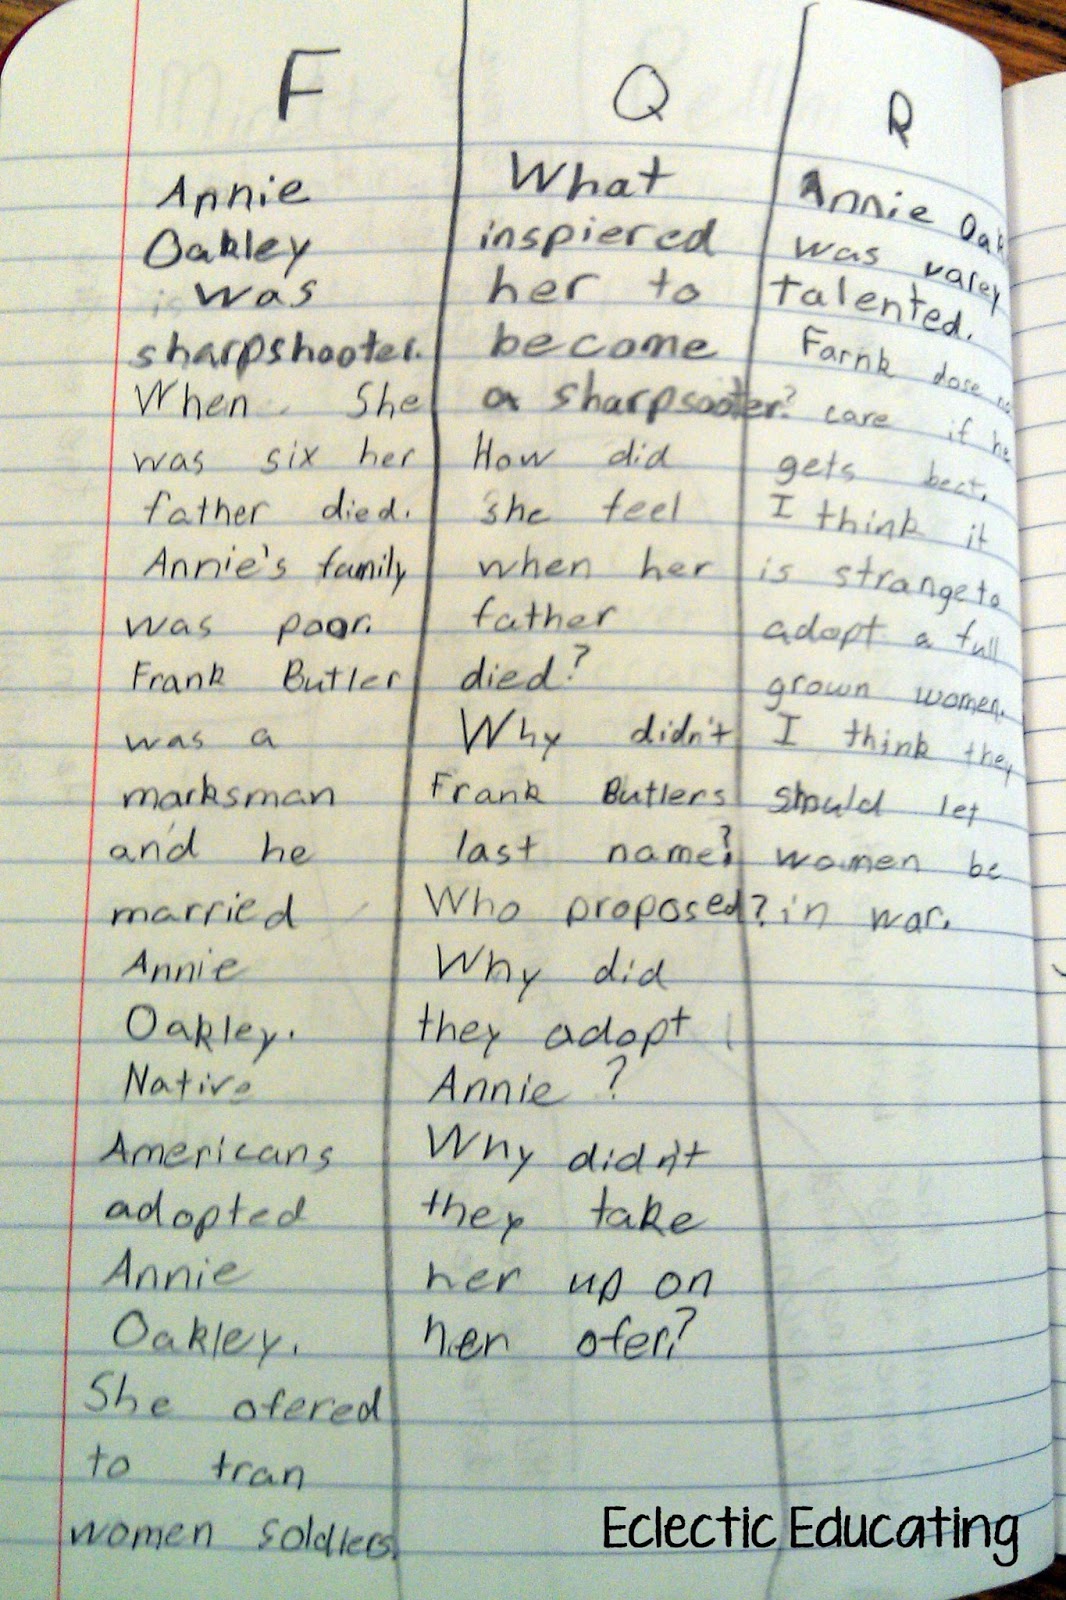 F
Annie
Oakley
is was
sharpshooter.
When She
was six her
father died.
Annie's family
was poor.
Frank Butler
was a
marksman
and he
married
Annie
Oakley.
Native
Americans
adopted
Annie
Oakley.
She ofered
to tran
women soldiers.
Q
What
inspiered
her to
become
a sharpsooter?
How did
she feel
when her
father
died?
Why didn't
Frank Butlers
last name?
Who proposed?
Why did
they adopt
Annie?
Why didn't
they take
her up on
her ofer?
R
Annie Oak
was varey
talented.
Farnk dose no
care if he
gets beat.
I think it
is strange to
adopt a full
grown women.
I think they
should let
women be
in war.
Eclectic Educating